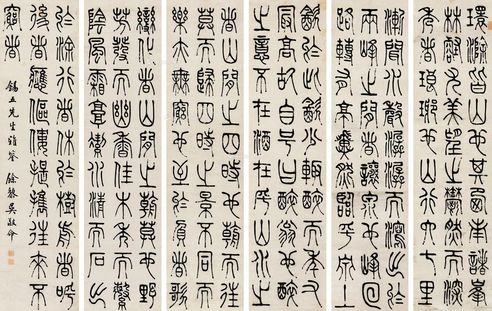 環滁皆山也其西南諸峯
林壑尤美望之蔚然而深
秀者琅琊也山行六七里
漸聞水聲潺潺而瀉出於
兩峰之間者讓泉也峰回
路轉有亭翼然臨於泉上
飲於此飲少輒醉而年又
最高故自號曰醉翁也醉翁
之意不在酒在乎山水之
者山間之四時也朝而往
莫而歸四時之景不同而
樂亦無窮也至於負者歌
變化者山間之朝莫也野
芳發而幽香佳木秀而繁
陰風霜高潔水清而石出
於塗行者休於樹前者呼
後者應傴僂提攜往來不
窮者
錫五先生雅鑒 餘杭吳敬